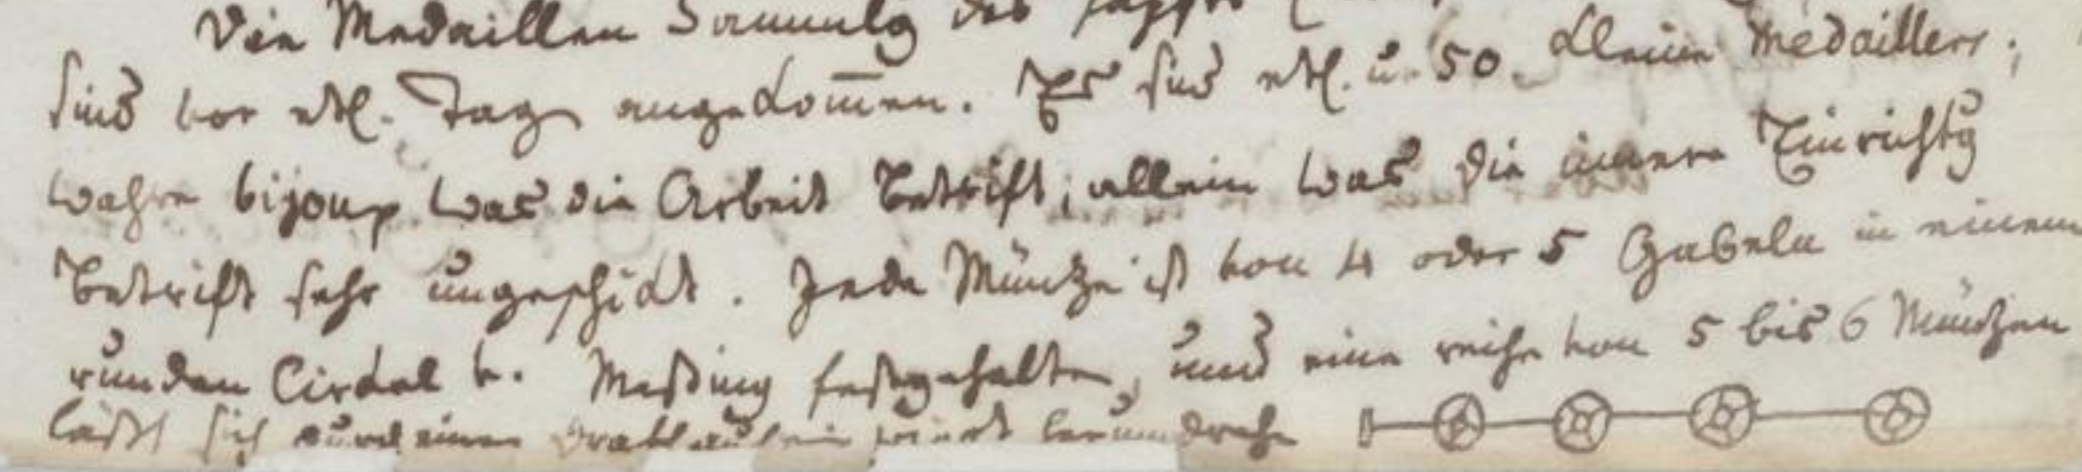 Die Medaillen Sammlg des
sind vor etl. Tagen angekom̄en. Es sind etl. u. 50. kleine Medaillen;
wahre bijoux was die Arbeit betrift; allein was die innere Einrichtg
betrift sehr ungeschickt. Jede Müntze ist von 4 oder 5 Gabeln in einem
runden Cirkel v. Meßing festgehalten, und eine reihe von 5 bis 6 Müntzen
läßt sich durch einen Drath herumdrehen